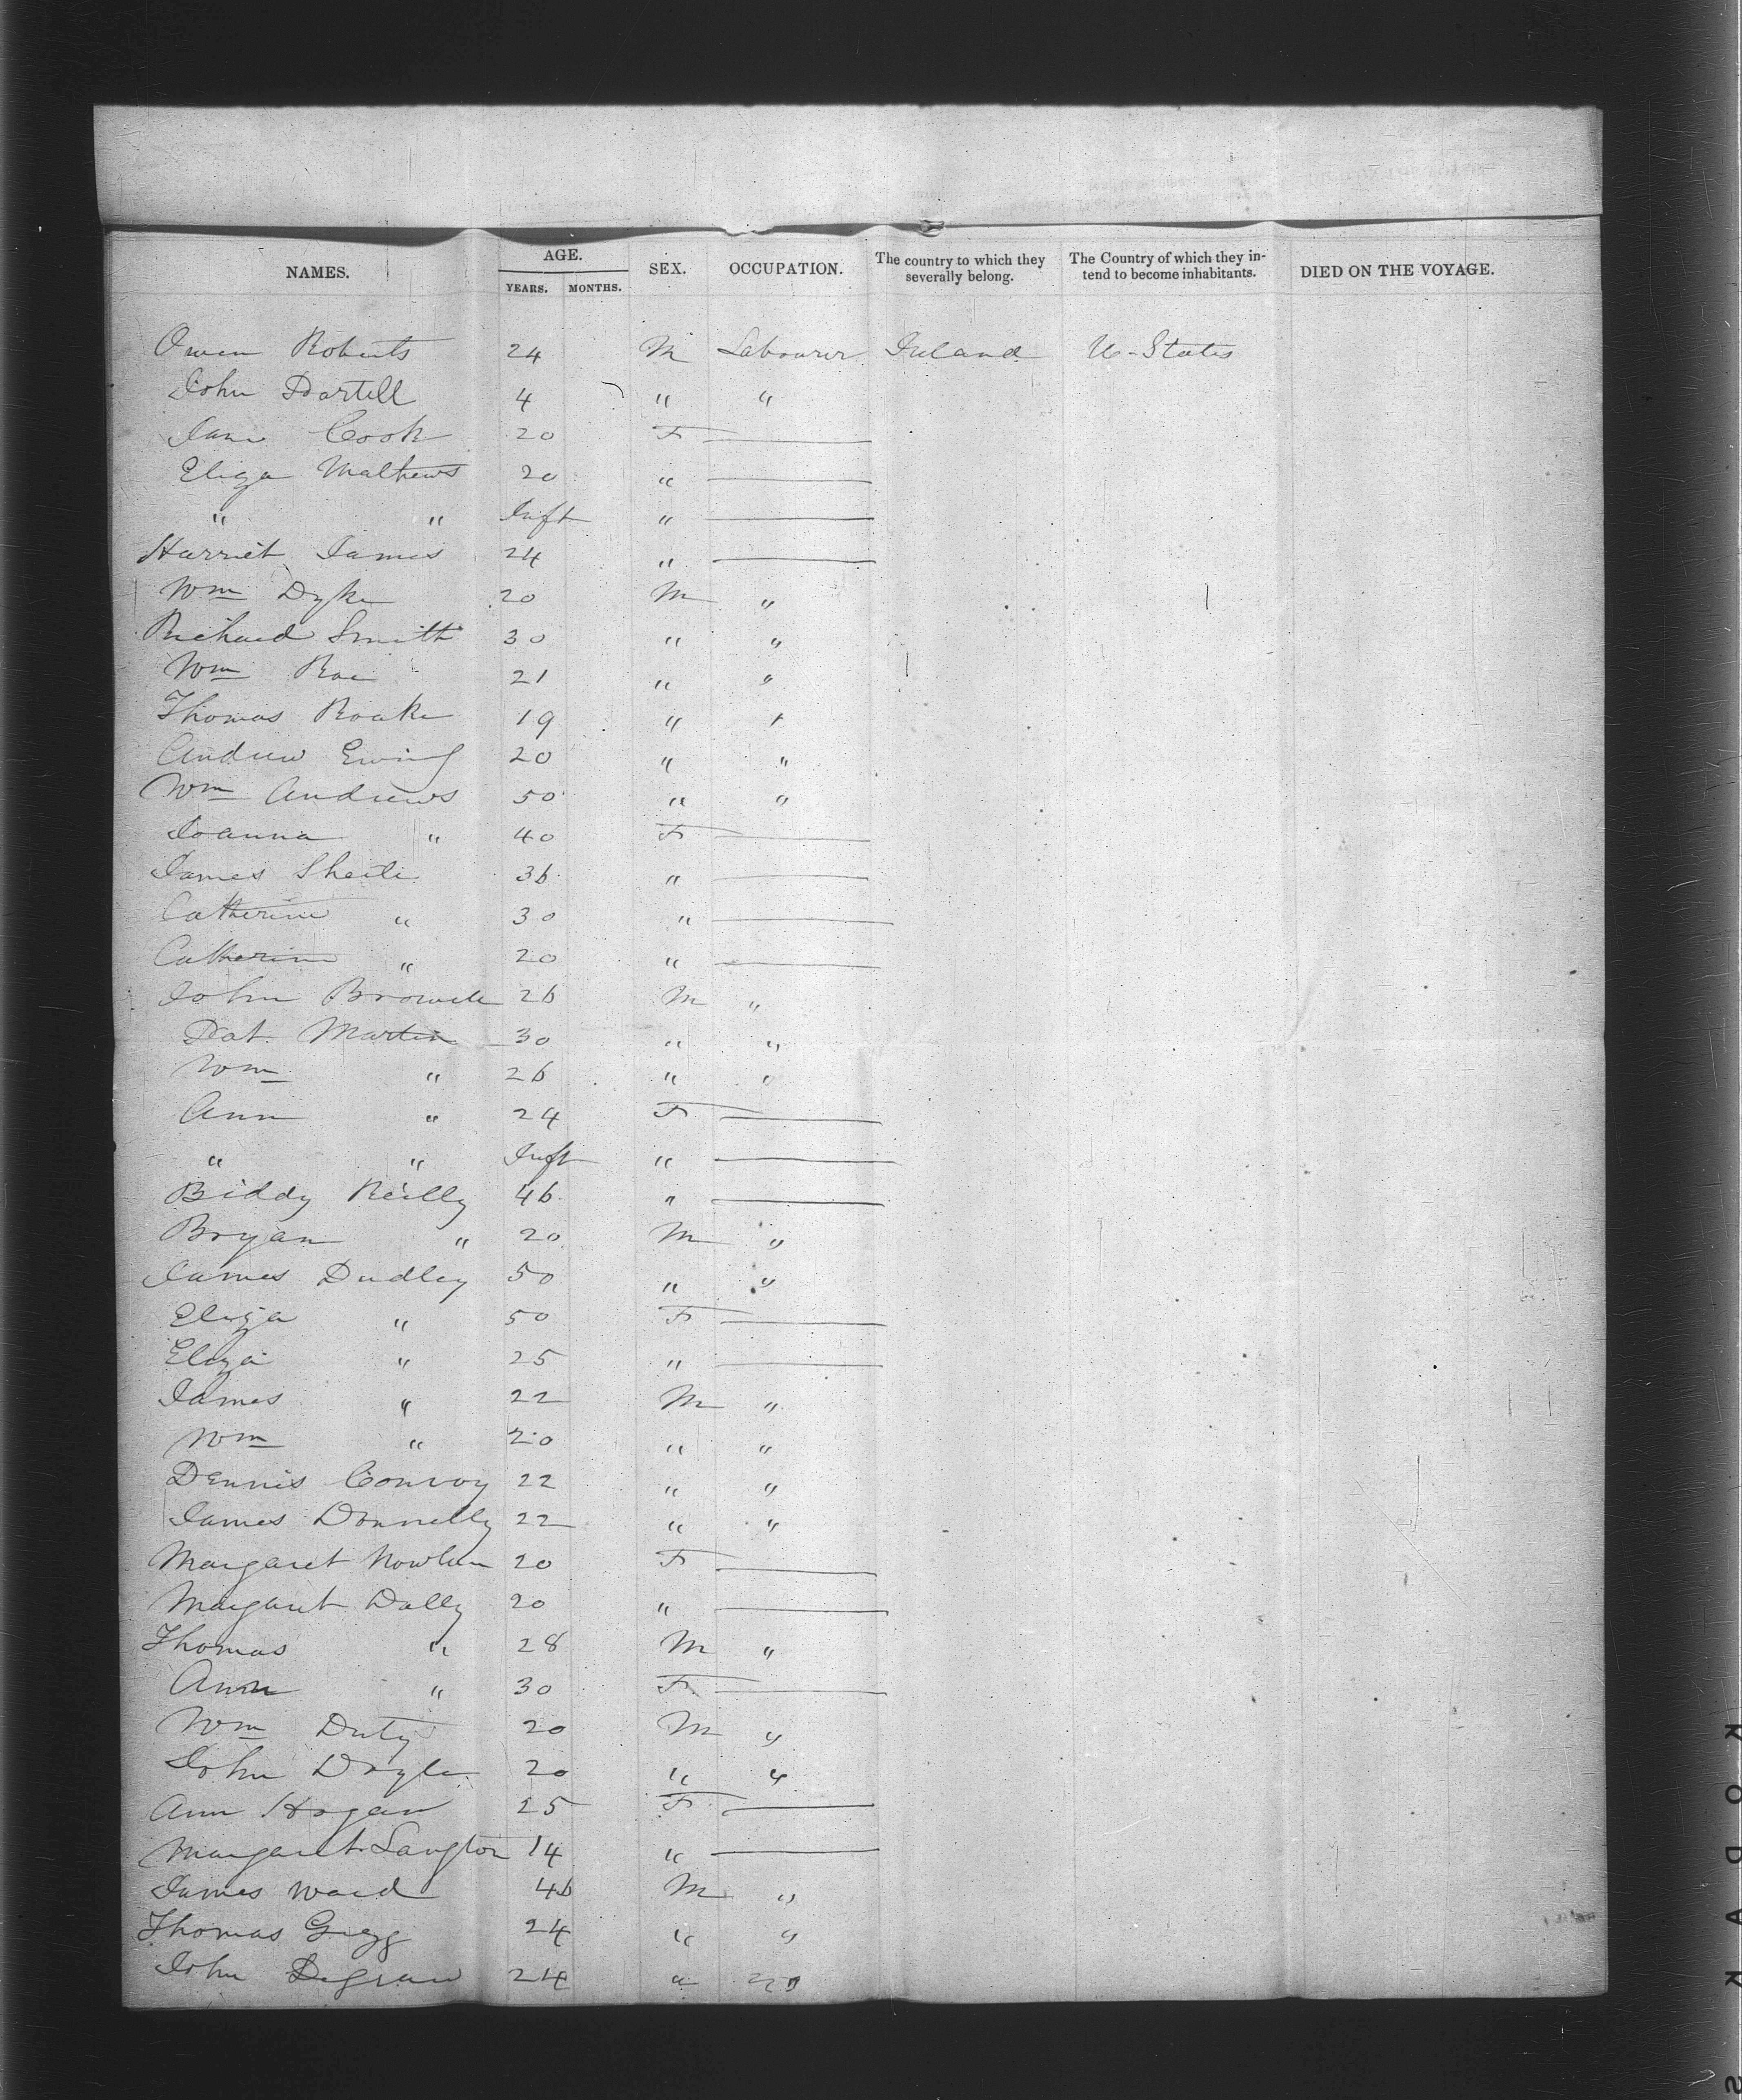 NAMES. AGE. YEARS. MONTHS. SEX. OCCUPATION. The country to which they severally belong. The Country of which they intend to become inhabitants. DIED ON THE VOYAGE.
Owen Roberts 24 M Labourer Ireland U-States
John 4 " "
Jane Cook 20 F
Eliza Mathews 20 "
" " Inft "
Harriet James 24 "
Wm Dyke 20 M "
Richard Smith 30 " "
Wm 21 " "
Thomas Roake 19 " "
Andrew Ewing 20 " "
Wm Andrews 50 " "
Joanna " 40 F
James 36 "
Catherine " 30 "
Catherine " 20 "
John 26 M "
Pat Martin 30 " "
Wm " 26 " "
Ann " 24 F
" " Inft "
Biddy Reilly 46 "
Bryan " 20 M "
James Dudley 50 " "
Eliza " 50 F
Eliza " 25 "
James " 22 M "
Wm " 20 " "
Dennis Conroy 22 " "
James Donnelly 22 " "
Margaret Nowlan 20 F
Margaret Dally 20 "
Thomas " 28 M "
Ann " 30 F
Wm Duty 20 M "
John Doyle 20 " "
Ann Hogan 25 F
Margaret Langton 14 "
James Ward 46 M "
Thomas Gregg 24 " "
John 24 " "
KODAK S